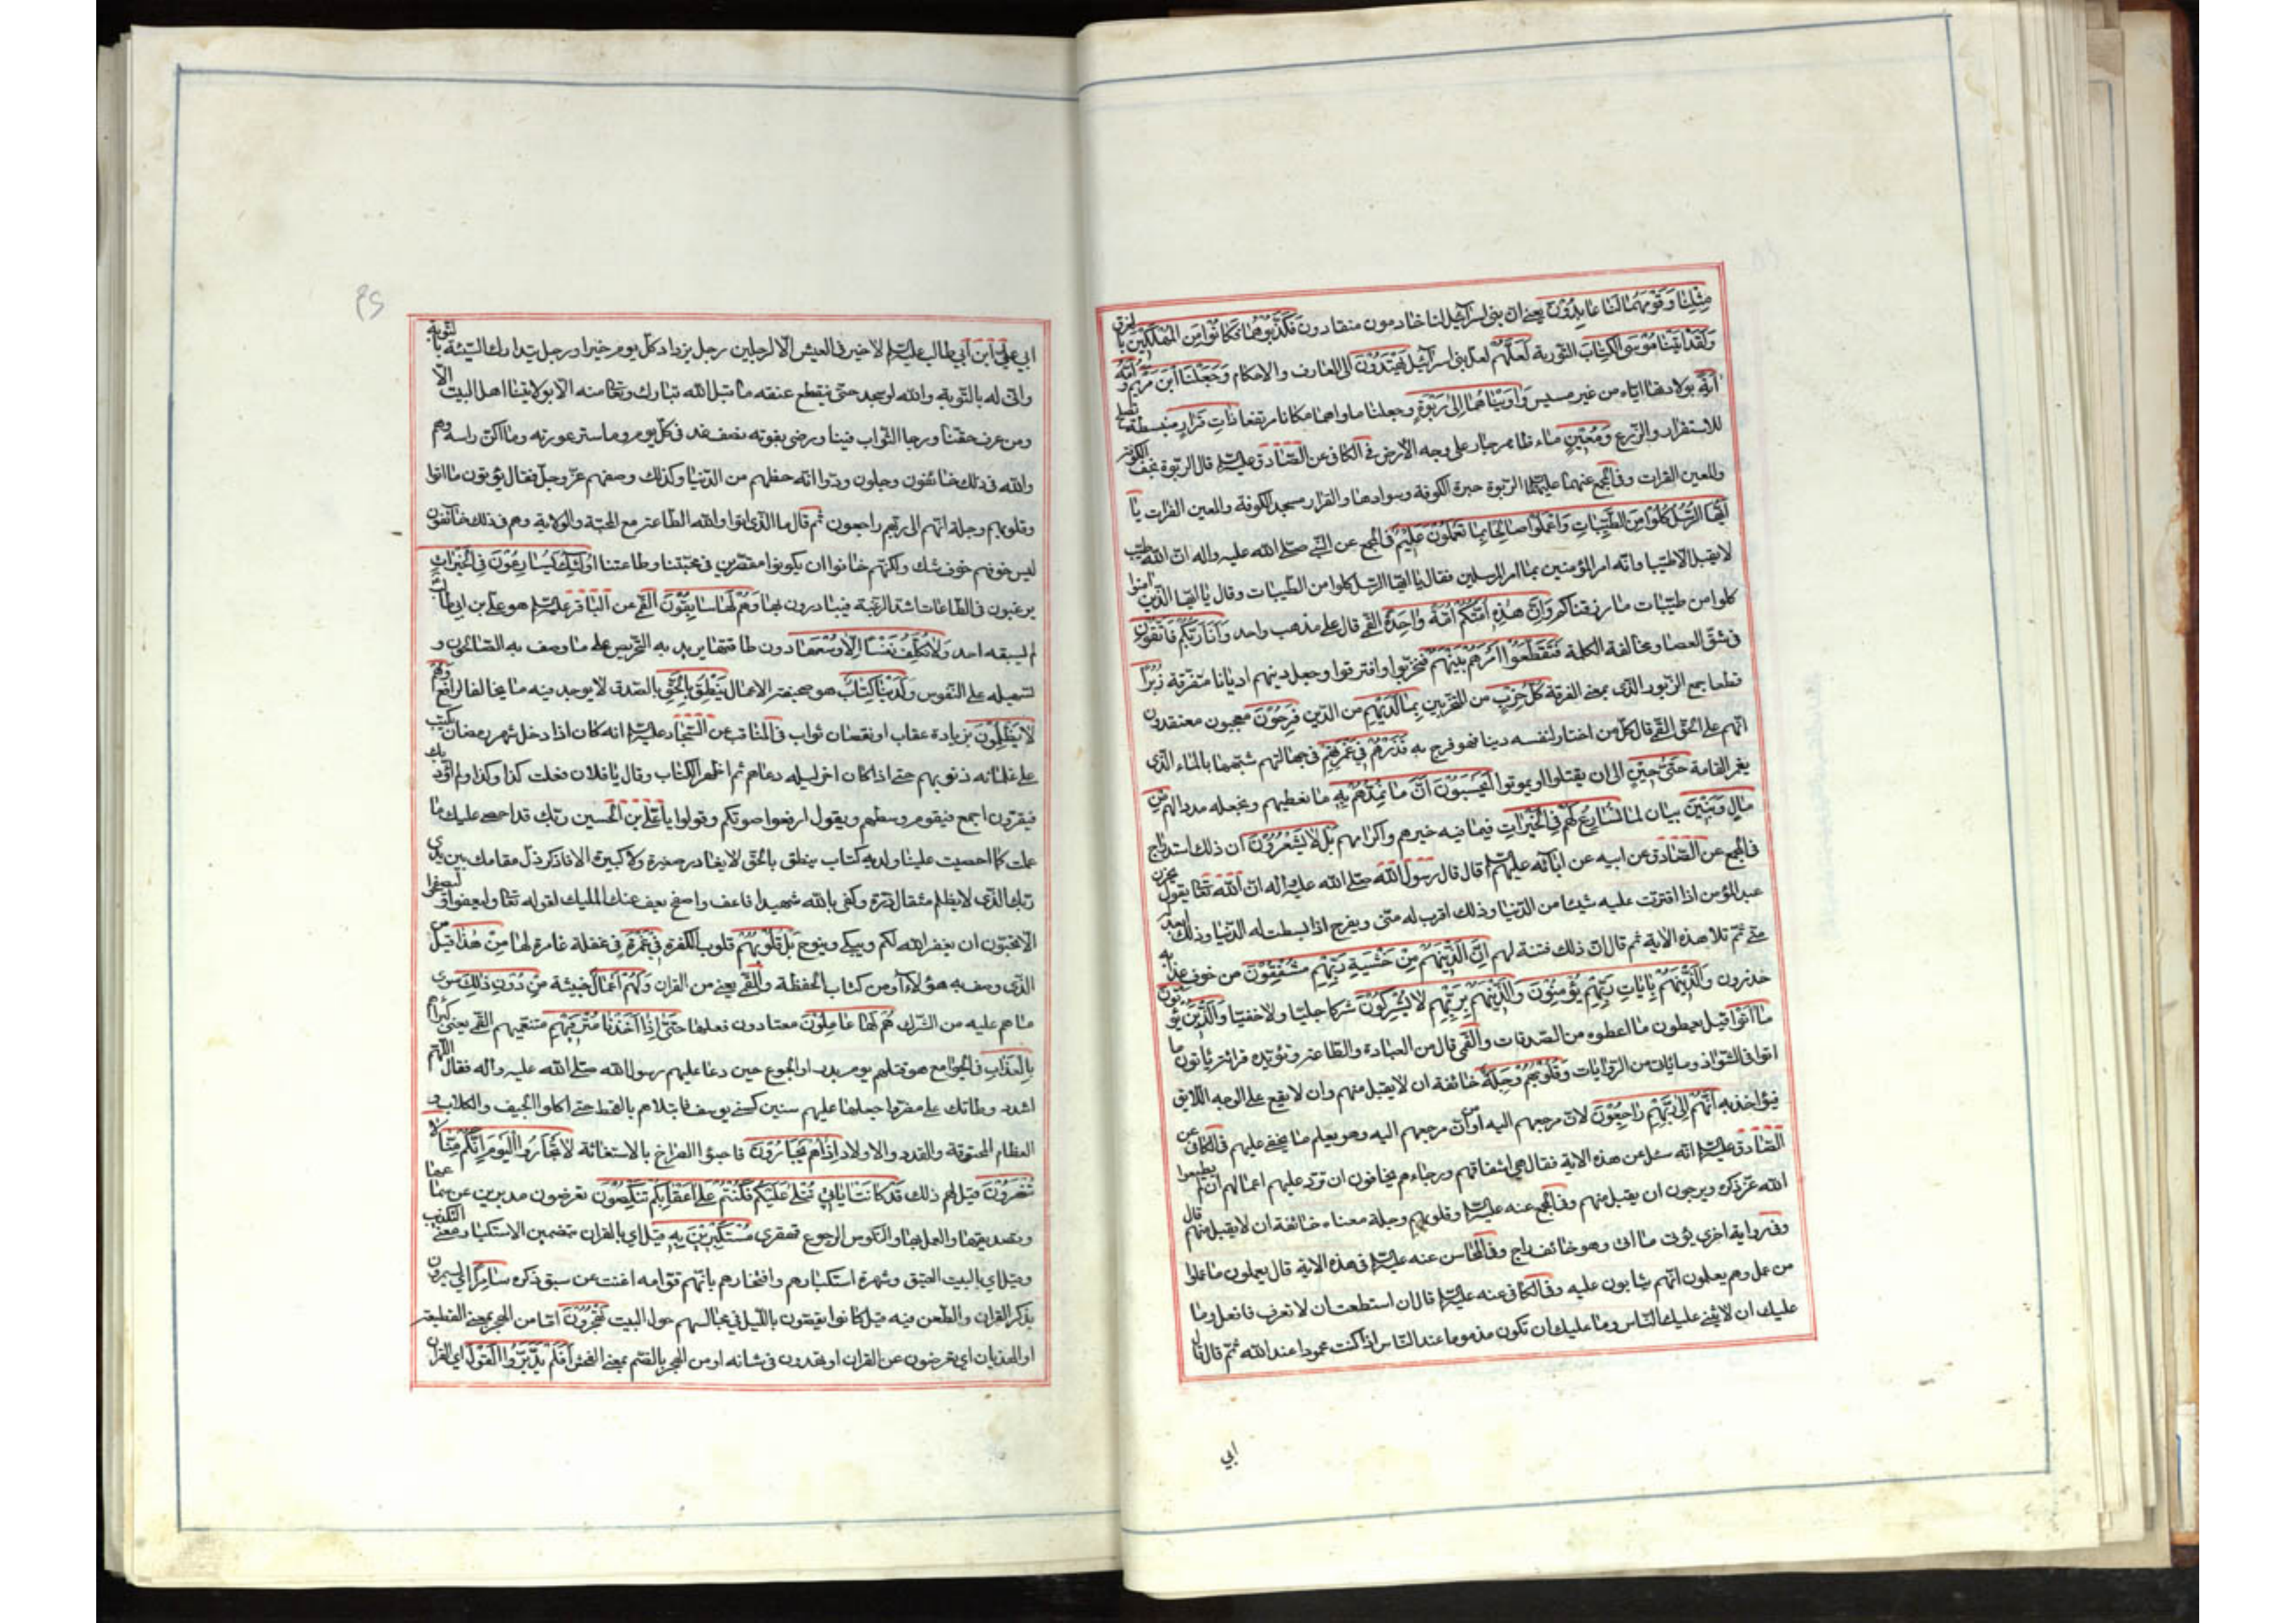 مِثْلِنٰا وَقَوْمُهُمٰا لَنٰا عٰابِدُونَ يعنى ان بنى اسرآئيل لنا خادمون منقادون فَكَذَّبُوهُمٰا فَكٰانُوا مِنَ الْمُهْلَكينَ بالغرق
وَلَقَدْ اٰتَيْنٰا مُوسَى الْكِتٰابَ التورية لَعَلَّهُمْ لعل بنى اسرآئيل يَهْتَدُونَ الى المعارف والاحكام وَجَعَلْنَا ابْنَ مَرْيَمَ وَاُمَّهُ
اٰيَةً بولادتها ايّاه من غير مسيس وَاٰوَيْنٰاهُمٰا اِلىٰ رَبْوَةٍ وجعلنا ماواهما مكانا مرتفعا ذٰاتِ قَرٰارٍ منبسطة تصلح
للاستقرار والزّرع وَمَعينٍ ماء ظاهر جار على وجه الارض فى الكافى عن الصّادق عليه السّلام قال الربوة نجف الكوفة
والمعين الفرات وفى المجمع عنهما عليهما السلام الربوة حيرة الكوفة وسوادها والقرار مسجد الكوفة والمعين الفرات يٰا
اَيُّهَا الرُّسُلُ كُلُوا مِنَ الطَّيِّبٰاتِ وَاعْمَلُوا صٰالِحًا اِنّى بِمٰا تَعْمَلُونَ عَليمٌ فى المجمع عن النّبى صلّى الله عليه واله انّ الله طيّب
لا يقبل الا طيّبا وانّه امر المؤمنين بما امر المرسلين فقال يا ايّها الرّسل كلوا من الطيبات وقال يا ايّها الّذين امنوا
كلوا من طيّبات ما رزقناكم وَاِنَّ هٰذِهِ اُمَّتُكُمْ اُمَّةً وٰاحِدَةً القمّى قال على مذهب واحد وَاَنَا رَبُّكُمْ فَاتَّقُونِ
فى شقّ العصا ومخالفة الكلمة فَتَقَطَّعُوا اَمْرَهُمْ بَيْنَهُمْ فتحزّبوا وافترقوا وجعلوا دينهم اديانا متفرقة زُبُرًا
قطعا جمع الزّبور الّذى بمعنى الفرقة كُلُّ حِزْبٍ من المتحزّبين بِمٰا لَدَيْهِمْ من الدّين فَرِحُونَ معجبون معتقدون
انّهم على الحقّ القمّى قال كلّ من اختار لنفسه دينا فهو فرح به فَذَرْهُمْ فى غَمْرَتِهِمْ فى جهالتهم شبّهها بالماء الّذى
يغمر القامة حَتّىٰ حينٍ الى ان يقتلوا او يموتوا اَيَحْسَبُونَ اَنَّ مٰا نُمِدُّهُمْ بِهِ ما نعطيهم ونجعله مددا لهم مِنْ
مٰالٍ وَبَنينَ بيان لما نُسٰارِعُ لَهُمْ فِى الْخَيْرٰاتِ فيما فيه خيرهم واكرامهم بَلْ لٰا يَشْعُرُونَ ان ذلك استدراج
فى المجمع عن الصّادق عن ابيه عن ابائه عليهم السلام قال قال رسول الله صلّى الله عليه واله انّ الله تعالى يقول يحزن
عبدى المؤمن اذا اقترت عليه شيئا من الدّنيا وذلك اقرب له منّى ويفرح اذا بسطت له الدّنيا وذلك ابعد له
منّى ثمّ تلا هذه الاية ثم قال انّ ذلك فتنة لهم اِنَّ الَّذينَ هُمْ مِنْ خَشْيَةِ رَبِّهِمْ مُشْفِقُونَ من خوف عذابه
حذرون وَالَّذينَ هُمْ بِاٰيٰاتِ رَبِّهِمْ يُؤْمِنُونَ وَالَّذينَ هُمْ بِرَبِّهِمْ لٰا يُشْرِكُونَ شركا جليّا ولا خفيّا وَالَّذينَ يُؤْتُونَ
مٰا اٰتَوْا قيل يعطون ما اعطوه من الصّدقات والقمّى قال من العبادة والطّاعة ويؤيّده قرائة ياتون ما
اتوا فى الشّواذ وما ياتى من الرّوايات وَقُلُوبُهُمْ وَجِلَةٌ خائفة ان لا يقبل منهم وان لا يقع على الوجه اللايق
فيؤاخذ به اَنَّهُمْ اِلىٰ رَبِّهِمْ رٰاجِعُونَ لانّ مرجعهم اليه او من انّ مرجعهم اليه وهو يعلم ما يخفى عليهم فى الكافى عن
الصّادق عليه السّلام انّه سئل عن هذه الاية فقال هى اشفاقهم ورجاءهم يخافون ان تردّ عليهم اعمالهم ان لم يطيعوا
الله عزّ ذكره ويرجون ان يقبل منهم وفى المجمع عنه عليه السّلام وقلوبهم وجلة معناه خائفة ان لا يقبل منهم قال
وفى رواية اخرى يؤتى ما اتى وهو خائف راج وفى المحاسن عنه عليه السّلام فى هذه الاية قال يعملون ما عملوا
من عمل وهم يعلمون انّهم يثابون عليه وفى الكافى عنه عليه السّلام قال ان استطعت ان لا تعرف فافعل وما
عليك ان لا يثنى عليك النّاس وما عليك ان تكون مذموما عند النّاس اذا كنت محمودا عند الله ثمّ قال قال
ابي
ابي علىّ ابن ابي طالب عليه السّلام لا خير فى العيش الّا لرجلين رجل يزداد كلّ يوم خيرا ورجل يتدارك السّيّئة بالتّوبة
وانّى له بالتّوبة والله لو سجد حتّى ينقطع عنقه ما قبل الله تبارك وتعالى منه الّا بولايتنا اهل البيت الا
ومن عرف حقّنا ورجا الثّواب فينا ورضى بقوته نصف مدّ فى كلّ يوم وما ستر عورته وما اكنّ راسه وهم
والله فى ذلك خائفون وجلون ودّوا انّه حظّهم من الدّنيا وكذلك وصفهم عزّ وجلّ فقال يؤتون ما اتوا
وقلوبهم وجلة انّهم الى ربّهم راجعون ثمّ قال ما الذّى اتوا والله الطّاعة مع المحبّة والولاية وهم فى ذلك خائفون
ليس خوفهم خوف شك ولكنّهم خافوا ان يكونوا مقصّرين فى محبّتنا وطاعتنا اُولٰئِكَ يُسٰارِعُونَ فِى الْخَيْرٰاتِ
يرغبون فى الطّاعات اشدّ الرّغبة فيبادرون بها وَهُمْ لَهٰا سٰابِقُونَ القمّى عن الباقر عليه السّلام هو علىّ بن ابى طالب
لم يسبقه احد وَلٰا نُكَلِّفُ نَفْسًا اِلّٰا وُسْعَهٰا دون طاقتها يريد به التّحريص على ما وصف به الصّالحون و
لتسهيله على النّفوس وَلَدَيْنٰا كِتٰابٌ هو صحيفة الاعمال يَنْطِقُ بِالْحَقِّ بالصّدق لا يوجد فيه ما يخالف الواقع وَهُمْ
لٰا يُظْلَمُونَ بزيادة عقاب او نقصان ثواب فى المناقب عن السّجّاد عليه السّلام انه كان اذا دخل شهر رمضان يكتب
على غلمانه ذنوبهم حتى اذا كان اخر ليله دعاهم ثم اظهر الكتاب وقال يا فلان فعلت كذا وكذا ولم اؤدّبك
فيقرّون اجمع فيقوم وسطهم ويقول ارفعوا صوتكم وقولوا يا علىّ بن الحسين ربّك قد احصى عليك ما
عملت كما احصيت علينا ولديه كتاب ينطق بالحّق لا يغادر صغيرة ولا كبيرة الا فاذكر ذلّ مقامك بين يدى
ربّك الّذى لا يظلم مثقال ذرّة وكفى بالله شهيدا فاعف واصفح يعف عنك المليك لقوله تعالى وليعفوا وليصفحوا
الا تحبّون ان يغفر الله لكم ويبكى وينوح بَلْ قُلُوبُهُمْ قلوب الكفرة فى غَمْرَةٍ فى غفلة غامرة لها مِنْ هٰذٰا قيل من
الّذى وصف به هؤلاء او من كتاب الحفظة والقمّى يعنى من القران وَلَهُمْ اَعْمٰالٌ خبيثة مِنْ دُونِ ذٰلِكَ سوى
ما هم عليه من الشّرك هُمْ لَهٰا عٰامِلُونَ معتادون فعلها حَتّىٰ اِذٰا اَخَذْنٰا مُتْرَفيهِمْ متنعّميهم القمّى يعنى كبرآءهم
بِالْعَذٰابِ فى الجوامع هو قتلهم يوم بدر او الجوع حين دعا عليهم رسول الله صلّى الله عليه واله فقال اللّهم
اشدد وطاتك على مضر واجعلها عليهم سنين كسنى يوسف فابتلاهم بالقحط حتى اكلوا الجيف والكلاب و
العظام المحترقة والقدد والاولاد اِذٰا هُمْ يَجْاَرُونَ فاجئوا الصّراخ بالاستغاثة لٰا تَجْاَرُوا الْيَوْمَ اِنَّكُمْ مِنّٰا لٰا
تُنْصَرُونَ قيل لهم ذلك قَدْ كٰانَتْ اٰيٰاتى تُتْلىٰ عَلَيْكُمْ فَكُنْتُمْ عَلىٰ اَعْقٰابِكُمْ تَنْكِصُونَ تعرضون مدبرين عن سماعها
وتصديقها والعمل بها والنّكوص الرجوع قهقرى مُسْتَكْبِرينَ بِهِ قيل اي بالقران بتضمين الاستكبار معنى التكذيب
وقيل اي بالبيت العتيق وشهرة استكبارهم وافتخارهم بانّهم قوّامه اغنت عن سبق ذكره سٰامِرًا اي يسمرون
بذكر القران والطّعن فيه قيل كانوا يقصّون باللّيل فى مجالسهم حول البيت تَهْجُرُونَ امّا من الهجر بمعنى القطيعة
او الهذيان اي تعرضون عن القران او تهذون فى شانه او من الهجر بالضّم بمعنى الفحش اَفَلَمْ يَدَّبَّرُوا الْقَوْلَ اي القران